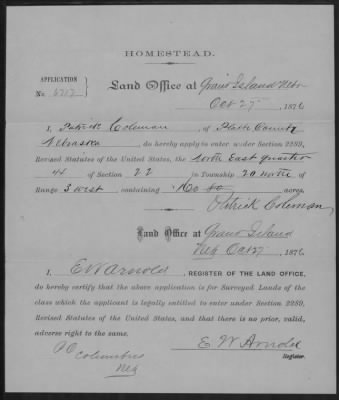 HOMESTEAD.
APPLICATION
No.
Land Office at Grand Island Nebr
Oct 27 1876
I, Patrick Coleman, of Platte County
Nebraska do hereby apply to enter under Section 2289,
Revised Statutes of the United States, the South East quarter
of Section 22 in Township 20 North of
Range 3 west, containing 160 acres.
Patrick Coleman
Land Office at Grand Island
Neb Oct 27 1876
I, E W Arnold, REGISTER OF THE LAND OFFICE,
do hereby certify that the above application is for Surveyed Lands of the
class which the applicant is legally entitled to enter under Section 2289,
Revised Statutes of the United States, and that there is no prior, valid,
adverse right to the same.
E W Arnold
Register.
PO Columbus
Neb